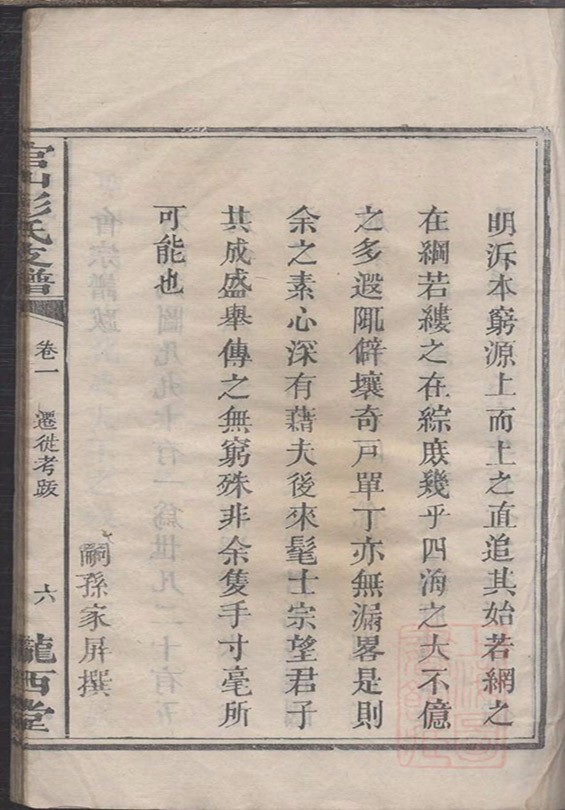 明泝本窮源上而上之直追其始若網之
在綱若縷之在綜庶幾乎四海之大不億
之多遐陬僻壤奇戸單丁亦無漏畧是則
余之素心深有藉夫後來髦士宗望君子
共成盛舉傳之無窮殊非余隻手寸毫所
可能也
嗣孫家屏撰
官山彭氏支譜
卷一
遷徙考跋
六
隴西堂